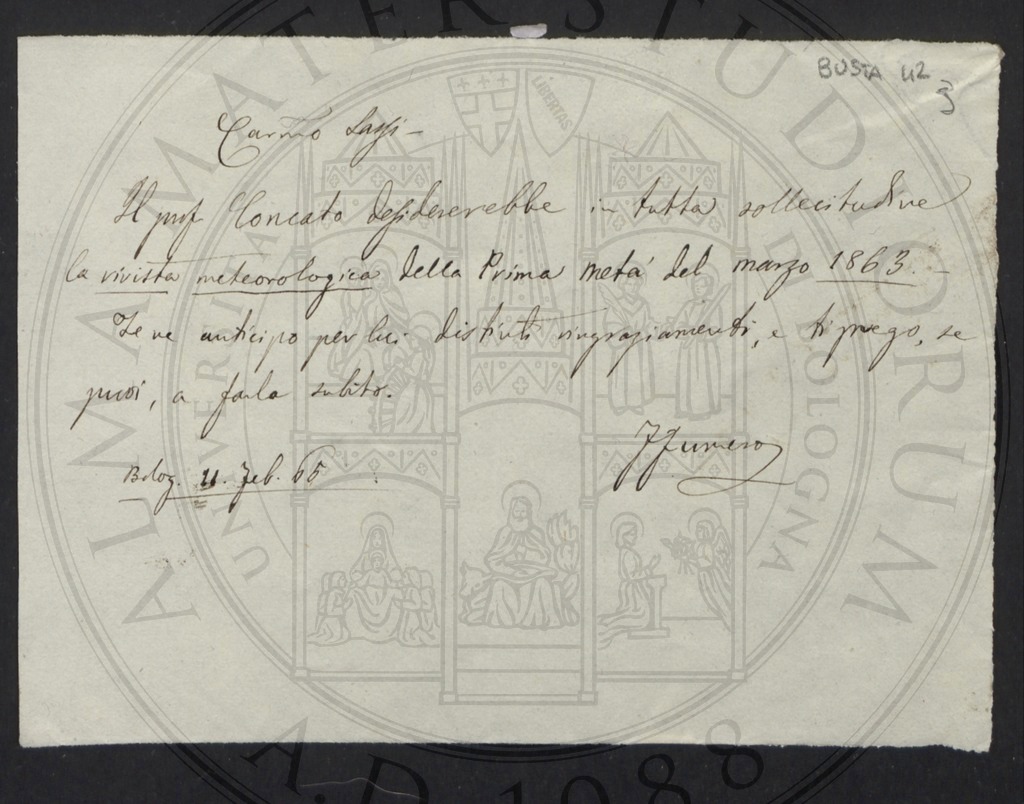 BUSTA 42
3
Carmo
Il prof Concato desidererebbe in tutta sollecitudine
la rivista meteorologica della Prima metà del marzo 1863. –
Te ne anticipo per lui distinti ringraziamenti, e ti prego, se
puoi, a farla subito.
Bolog. 11. Feb. 65
ALMA MATER STUDIORUM
UNIVERSITÀ DI BOLOGNA
LIBERTAS
A.D. 1088